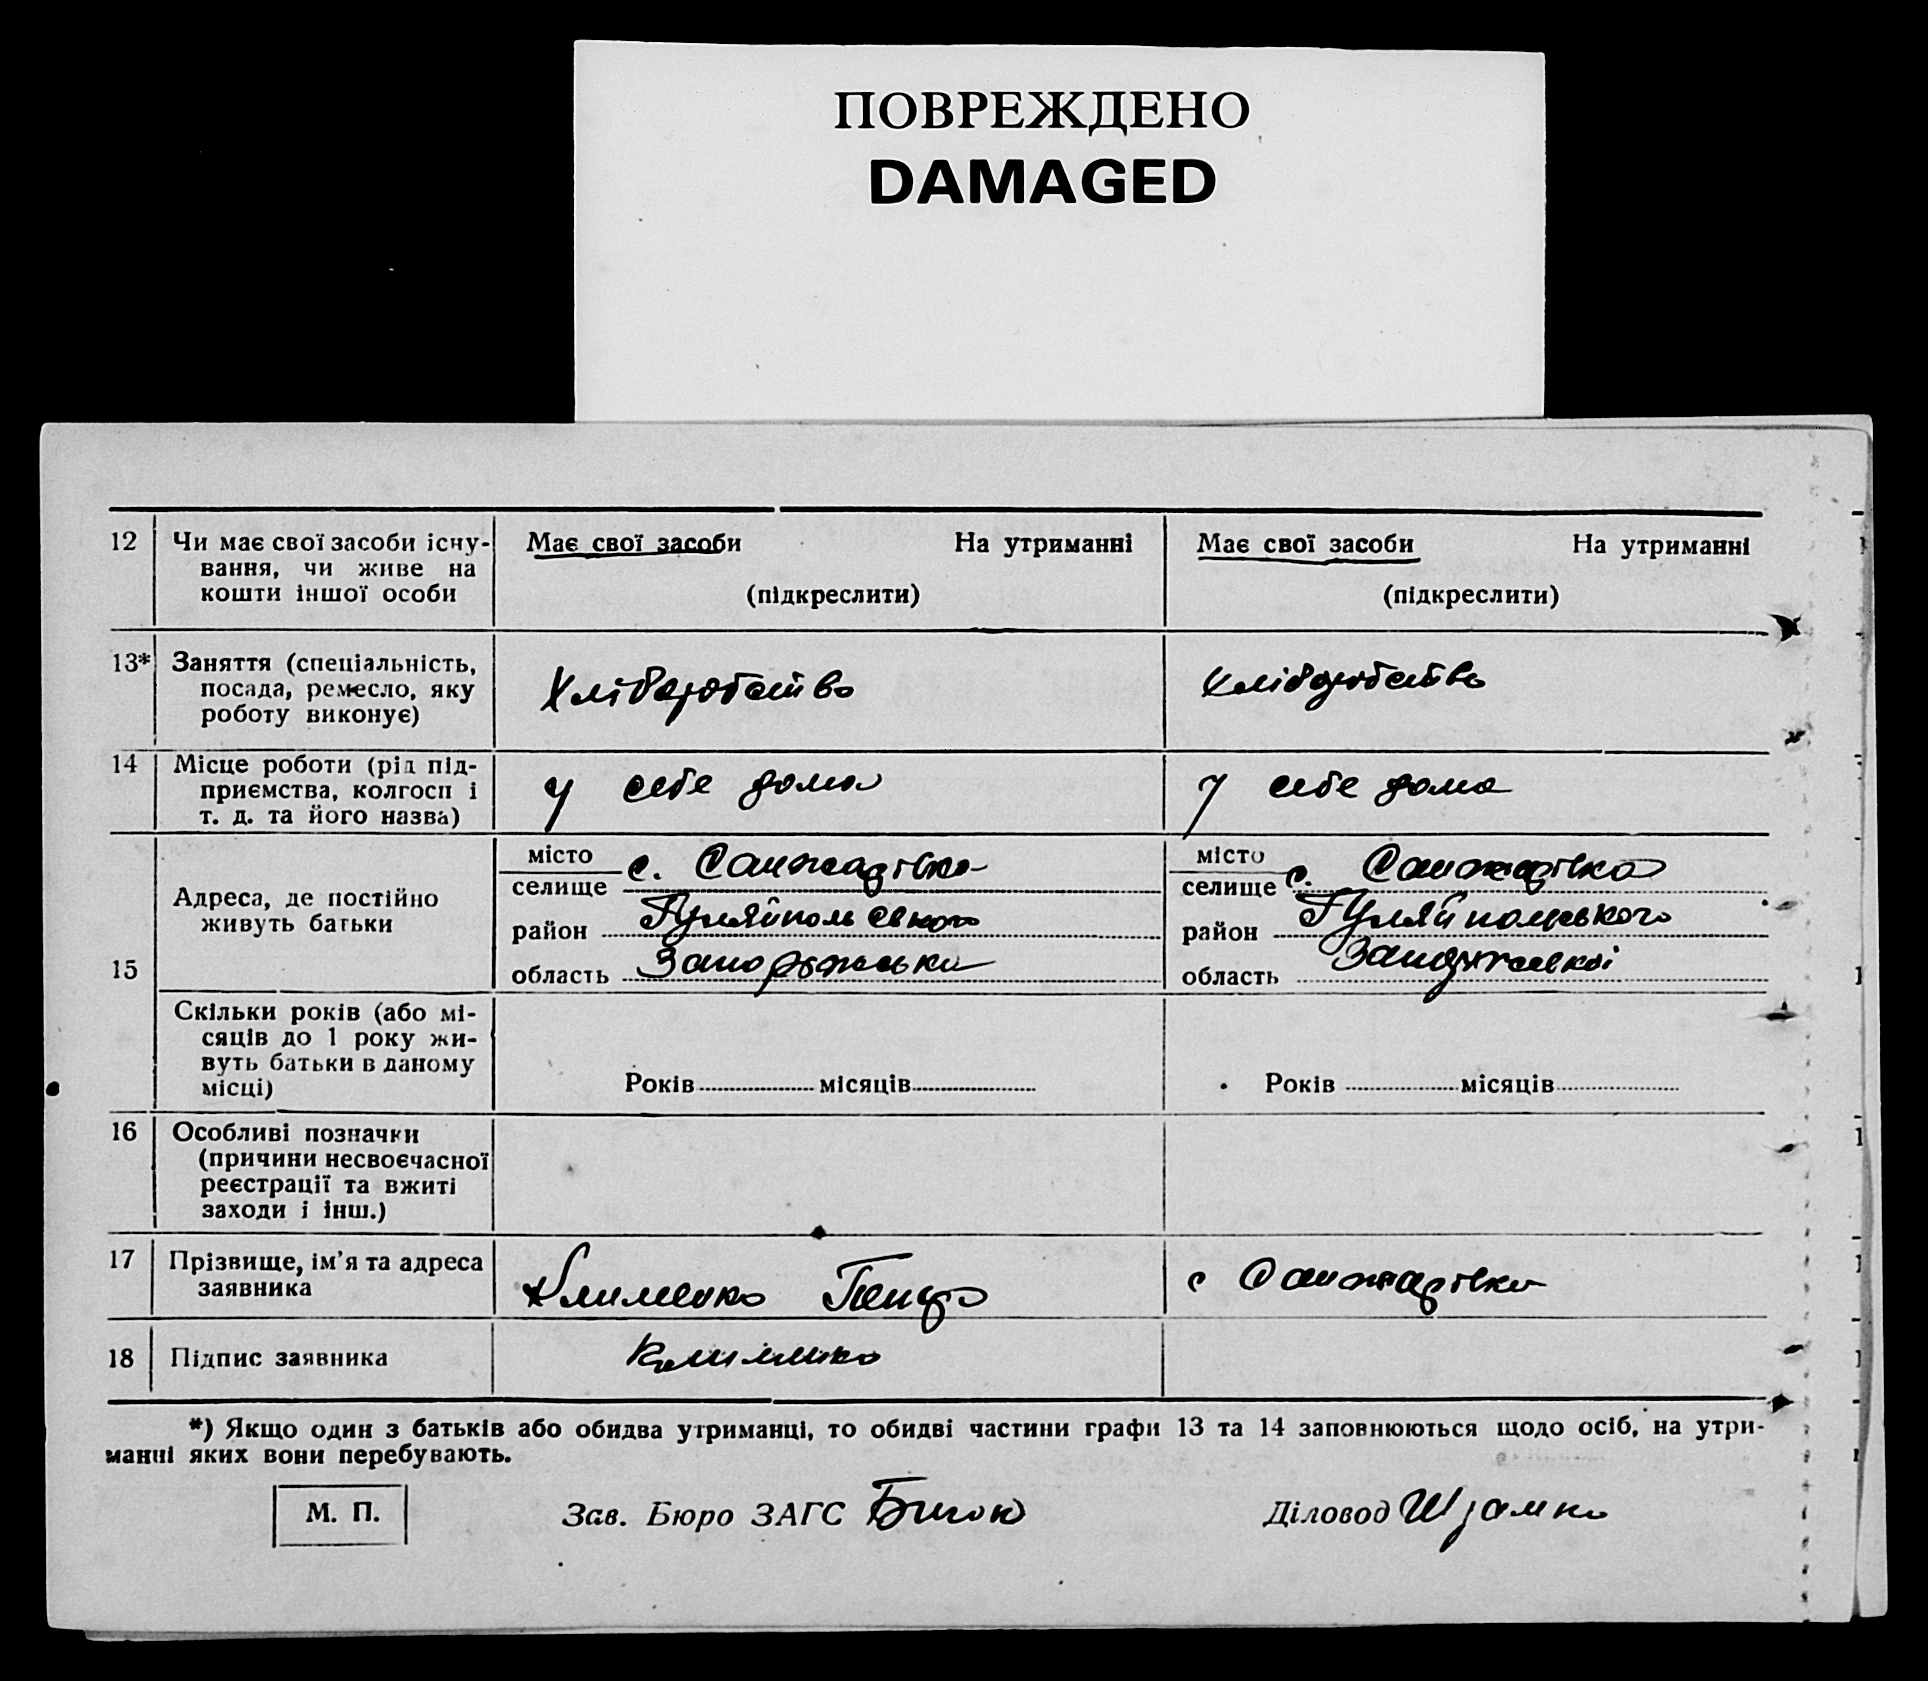 ПОВРЕЖДЕНО
DAMAGED
12 Чи має свої засоби існу- Має свої засоби На утриманні Має свої засоби На утриманні
вання, чи живе на
кошти іншої особи (підкреслити) (підкреслити)
13* Заняття (спеціальність,
посада, ремесло, яку Хліборобство Хліборобство
роботу виконує)
14 Місце роботи (рід під-
приємства, колгосп і у себе дома у себе дома
т. д. та його назва)
місто с. Санжарівка місто с. Санжарівка
селище селище
Адреса, де постійно
живуть батьки район Гуляйпольського район Гуляйпольського
15 область Запоріжська область Запоріжської
Скільки років (або мі-
сяців до 1 року жи-
вуть батьки в даному
місці) Років місяців Років місяців
16 Особливі позначки
(причини несвоєчасної
реєстрації та вжиті
заходи і інш.)
17 Прізвище, ім'я та адреса Клименко с Санжарівка
заявника
18 Підпис заявника Клименко
*) Якщо один з батьків або обидва утриманці, то обидві частини графи 13 та 14 заповнюються щодо осіб, на утри-
манні яких вони перебувають.
М. П. Зав. Бюро ЗАГС Діловод